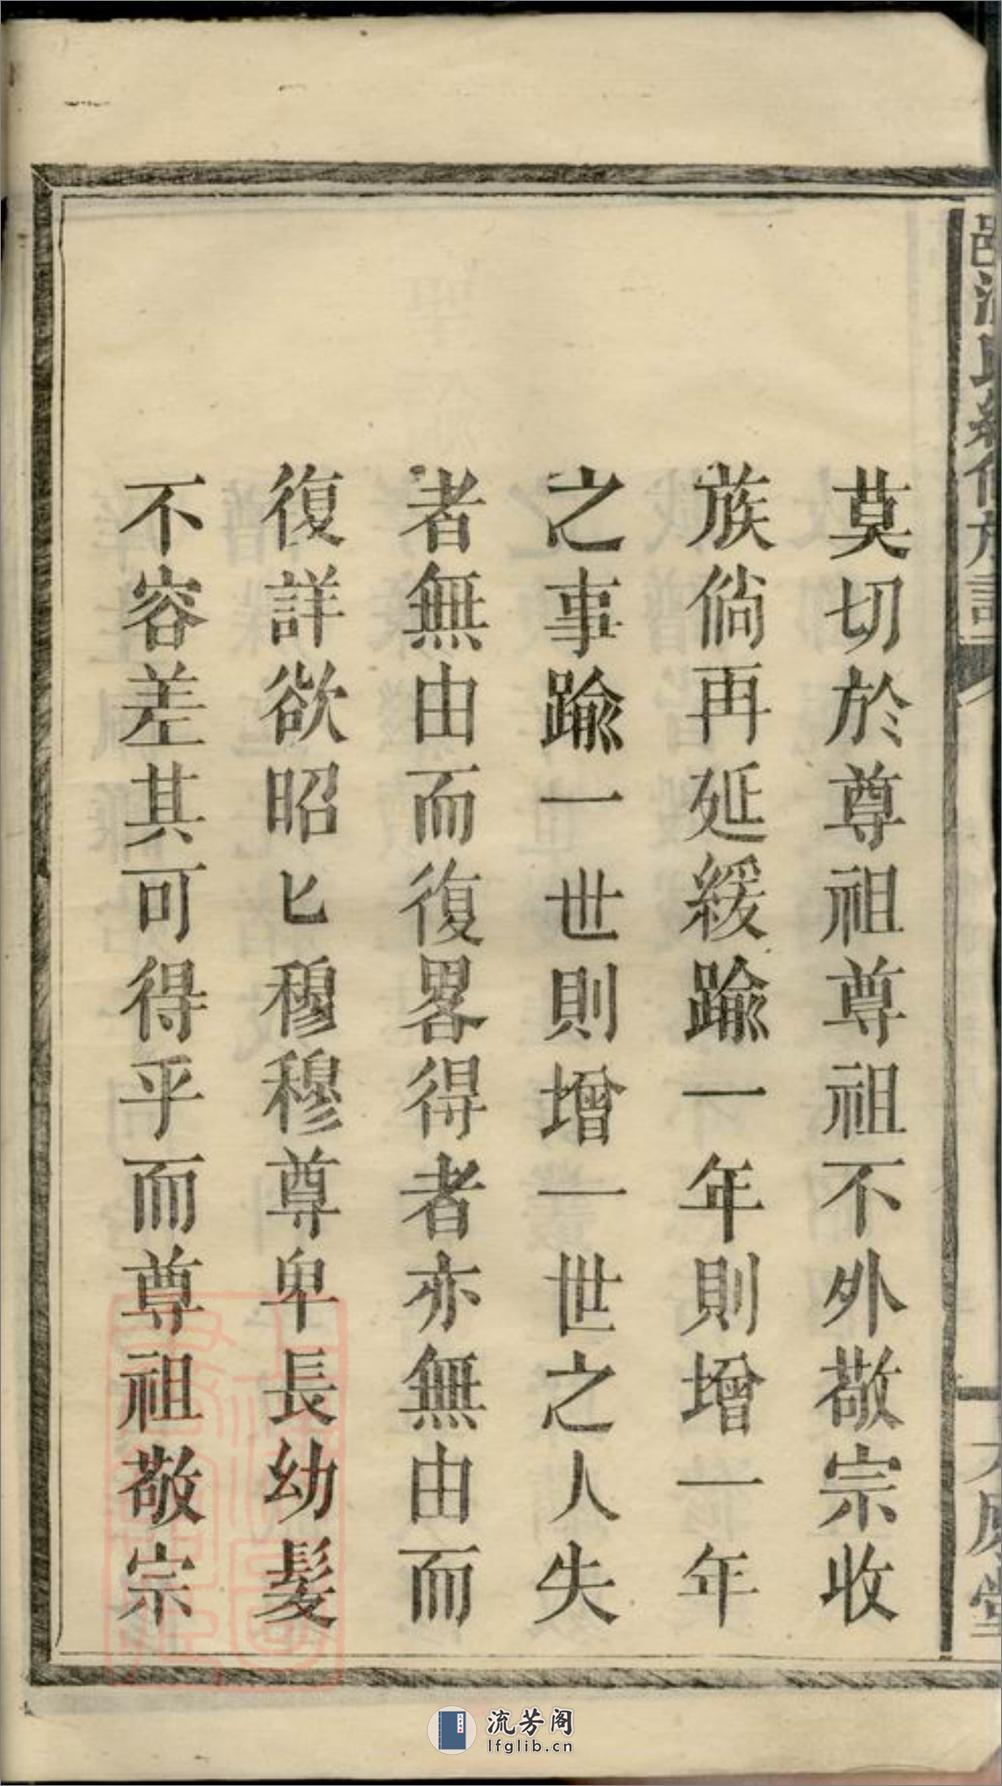 莫切於尊祖尊祖不外敬宗收
族倘再延緩踰一年則增一年
之事踰一世則增一世之人失
者無由而復畧得者亦無由而
復詳欲昭匕穆穆尊卑長幼髮
不容差其可得乎而尊祖敬宗
流芳阁
lfglib.cn